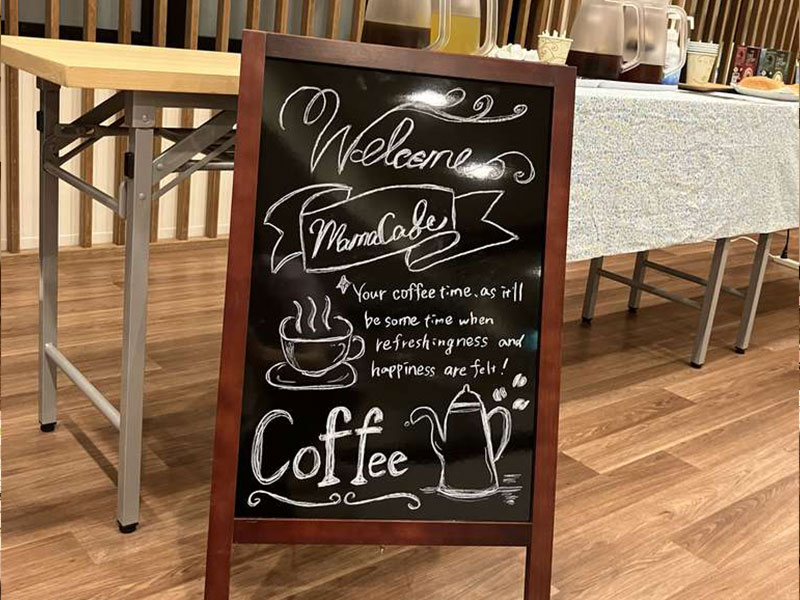 Welcome
MamaCafe
Your coffee time, as it'll
be some time when
refreshingness and
happiness are felt!
Coffee